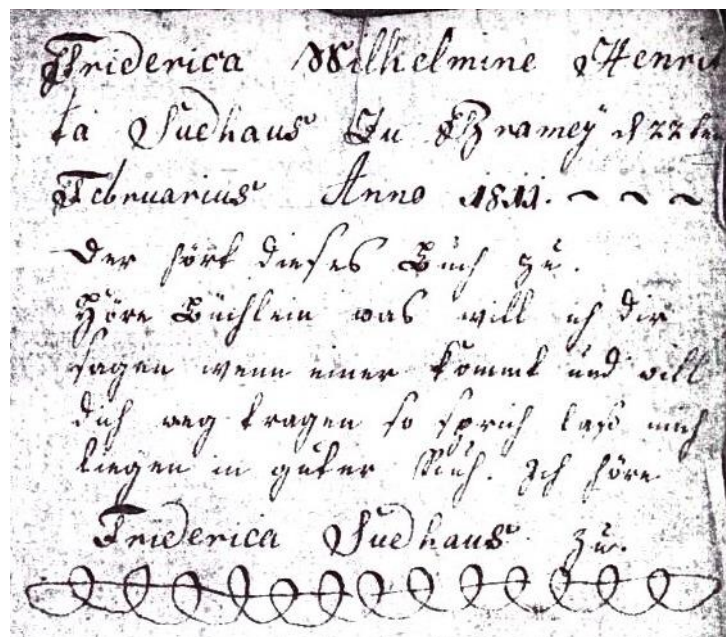 Friderica Wilhelmine Henri
ta Sudhaus Zu Bramey d 22te
Februarius Anno 1811. ~ ~ ~
Der hört dieses Buch zu.
Höre Büchlein was will ich dir
sagen wenn einer kommt und will
dich weg tragen so sprich lass mich
liegen in guter Ruh. Ich höre
Friderica Sudhaus zu.